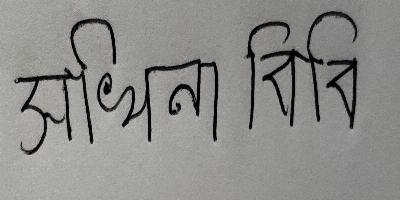 সখিনা বিবি